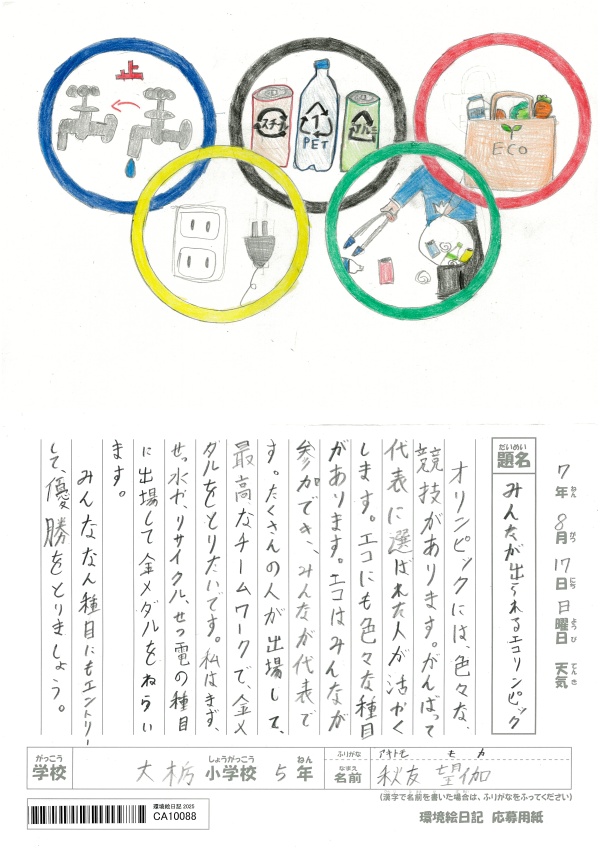 止
スチール
PET
アルミ
ECO
7年ねん 8月がつ 17日にち 日曜日ようび 天気てんき
だいめい
題名 みんなが出られるエコリンピック
オリンピックには、色々な、
競技があります。がんばって
代表に選ばれた人が活かく
します。エコにも色々な種目
があります。エコはみんなが
参加でき、みんなが代表で
す。たくさんの人が出場して、
最高なチームワークで、金メ
ダルをとりたいです。私はまず、
せっ水や、リサイクル、せつ電の種目
に出場して金メダルをねらい
ます。
みんななん種目にもエントリー
して、優勝をとりましょう。
がっこう しょうがっこう ねん ふりがな アキトモ モカ
学校 大栃 小学校 5年 なまえ 名前 秋友 望伽
(漢字で名前を書いた場合は、ふりがなをふってください)
環境絵日記 応募用紙
環境絵日記 2025
CA10088